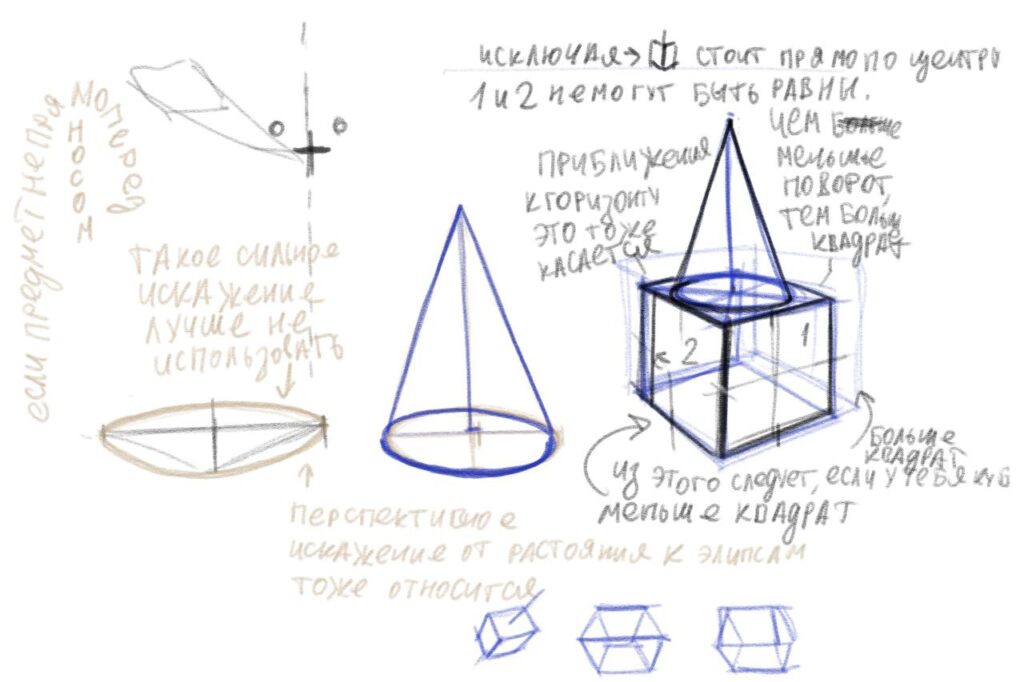 исключая→ стоит прямо по центру
1 и 2 не могут быть равны.
чем больше
меньше
поворот,
тем больше
квадрат
приближения
к горизонту
это тоже
касается
если предмет не прямо
перед
носом
такое сильное
искажение
лучше не
использовать
2
1
больше
квадрат
из этого следует, если у тебя куб
меньше квадрат
перспективное
искажение от растояния к элипсам
тоже относится